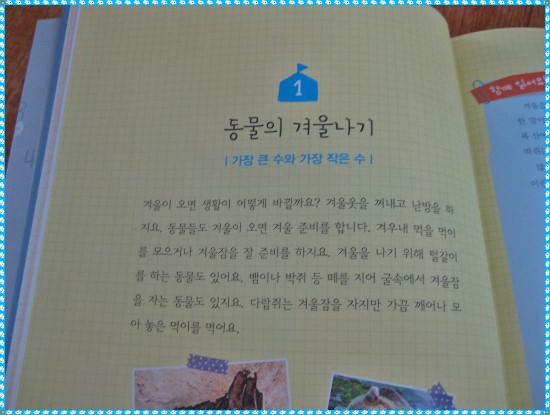 1
동물의 겨울나기
| 가장 큰 수와 가장 작은 수 |
겨울이 오면 생활이 어떻게 바뀔까요? 겨울옷을 꺼내고 난방을 하
지요. 동물들도 겨울이 오면 겨울 준비를 합니다. 겨우내 먹을 먹이
를 모으거나 겨울잠을 잘 준비를 하지요. 겨울을 나기 위해 털갈이
를 하는 동물도 있어요. 뱀이나 박쥐 등 떼를 지어 굴속에서 겨울잠
을 자는 동물도 있지요. 다람쥐는 겨울잠을 자지만 가끔 깨어나 모
아 놓은 먹이를 먹어요.
함께 읽어요
겨울을